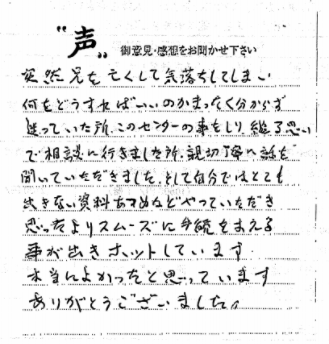 “声” 御意見・感想をお聞かせ下さい
突然兄を亡くして気落ちしてしまい
何をどうすればいいのかまったく分からず
迷っていた所、このセンターの事をしり、縋る思い
で相談に行きました所、親切丁寧に話を
聞いていただきました。そして自分ではとても
出きない資料あつめなどやっていただき
思ったよりスムーズに手続をまえる
事が出きホットしています。
本当によかったと思っています
ありがとうございました。